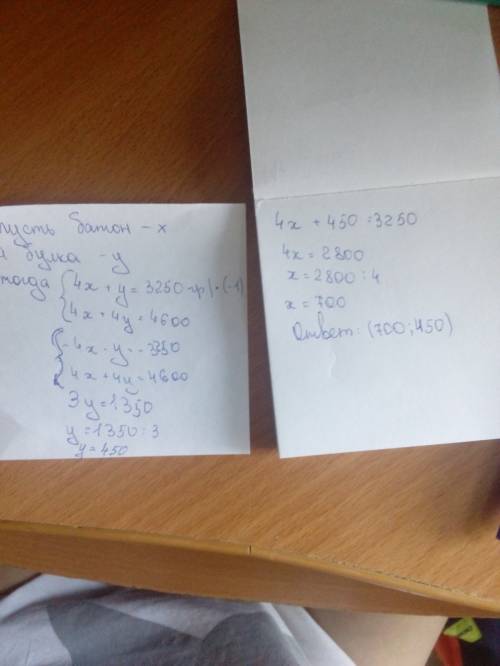 пусть батон - x
а булка - y
тогда { 4x + y = 3250 гр | · (-1)
4x + 4y = 4600
{ -4x - y = -3250
4x + 4y = 4600
3y = 1350
y = 1350 : 3
y = 450
4x + 450 = 3250
4x = 2800
x = 2800 : 4
x = 700
Ответ: (700; 450)